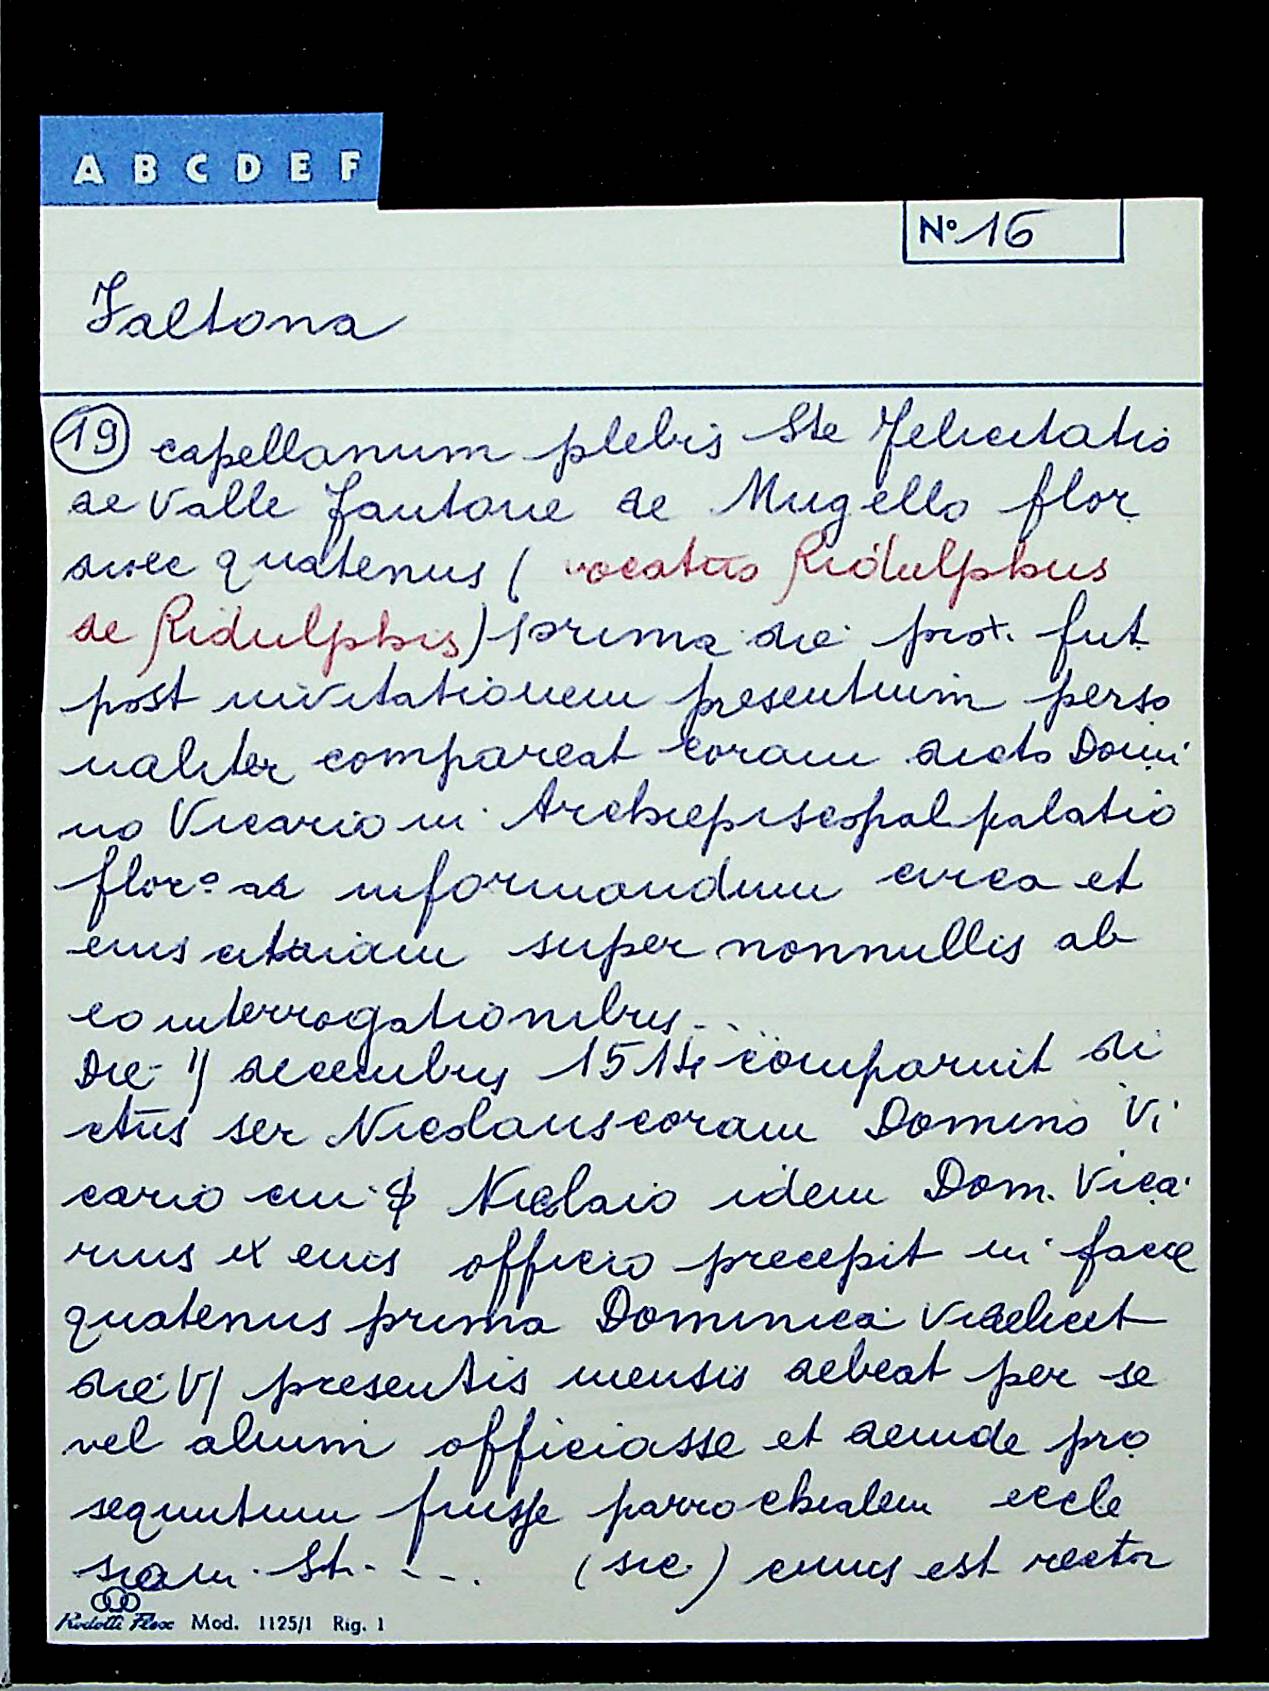 A B C D E F
N° 16
Faltona
19 capellanum plebis Ste Felicitatis
de Valle Fantone de Mugello flor
diec quatenus ( vocatus Ridulphus
de Ridulphis) prima die prox. fut
post invitationem presentium perso
naliter compareat coram dicto Domi
no Vicario in Archiepiscopal palatio
flor° ad informandum circa et
eius super nonnullis ab
eo interrogationibus...
Die 1j decembris 1514 comparuit di
ctus ser Nicolaus coram Domino Vi
cario cui Niclaio idem Dom. Vica
rius ex eius officio precepit in facie
quatenus prima Dominica videlicet
die VJ presentis mensis debeat per se
vel alium officiasse et deinde pro
sequutum fuisse parrochialem eccle
siam St. .... (sic) cuius est rector
Rodolti Flex Mod. 1125/1 Rig. 1